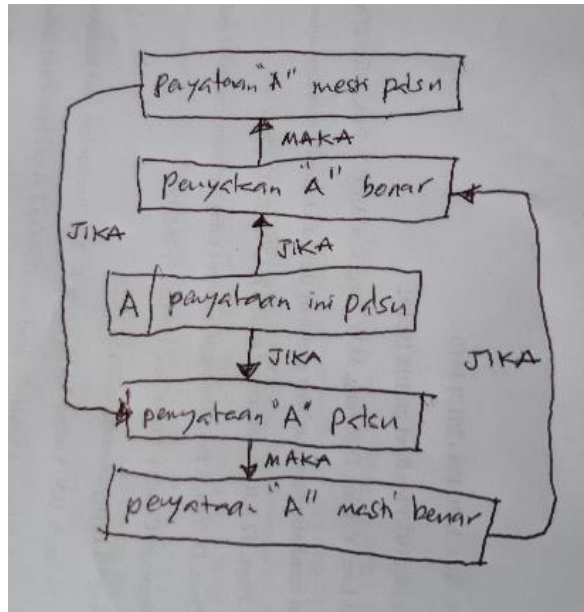 penyataan "A" mesti palsu
MAKA
Penyataan "A" benar
JIKA
JIKA
A penyataan ini palsu
JIKA
JIKA
penyataan "A" palsu
MAKA
penyataan "A" mesti benar